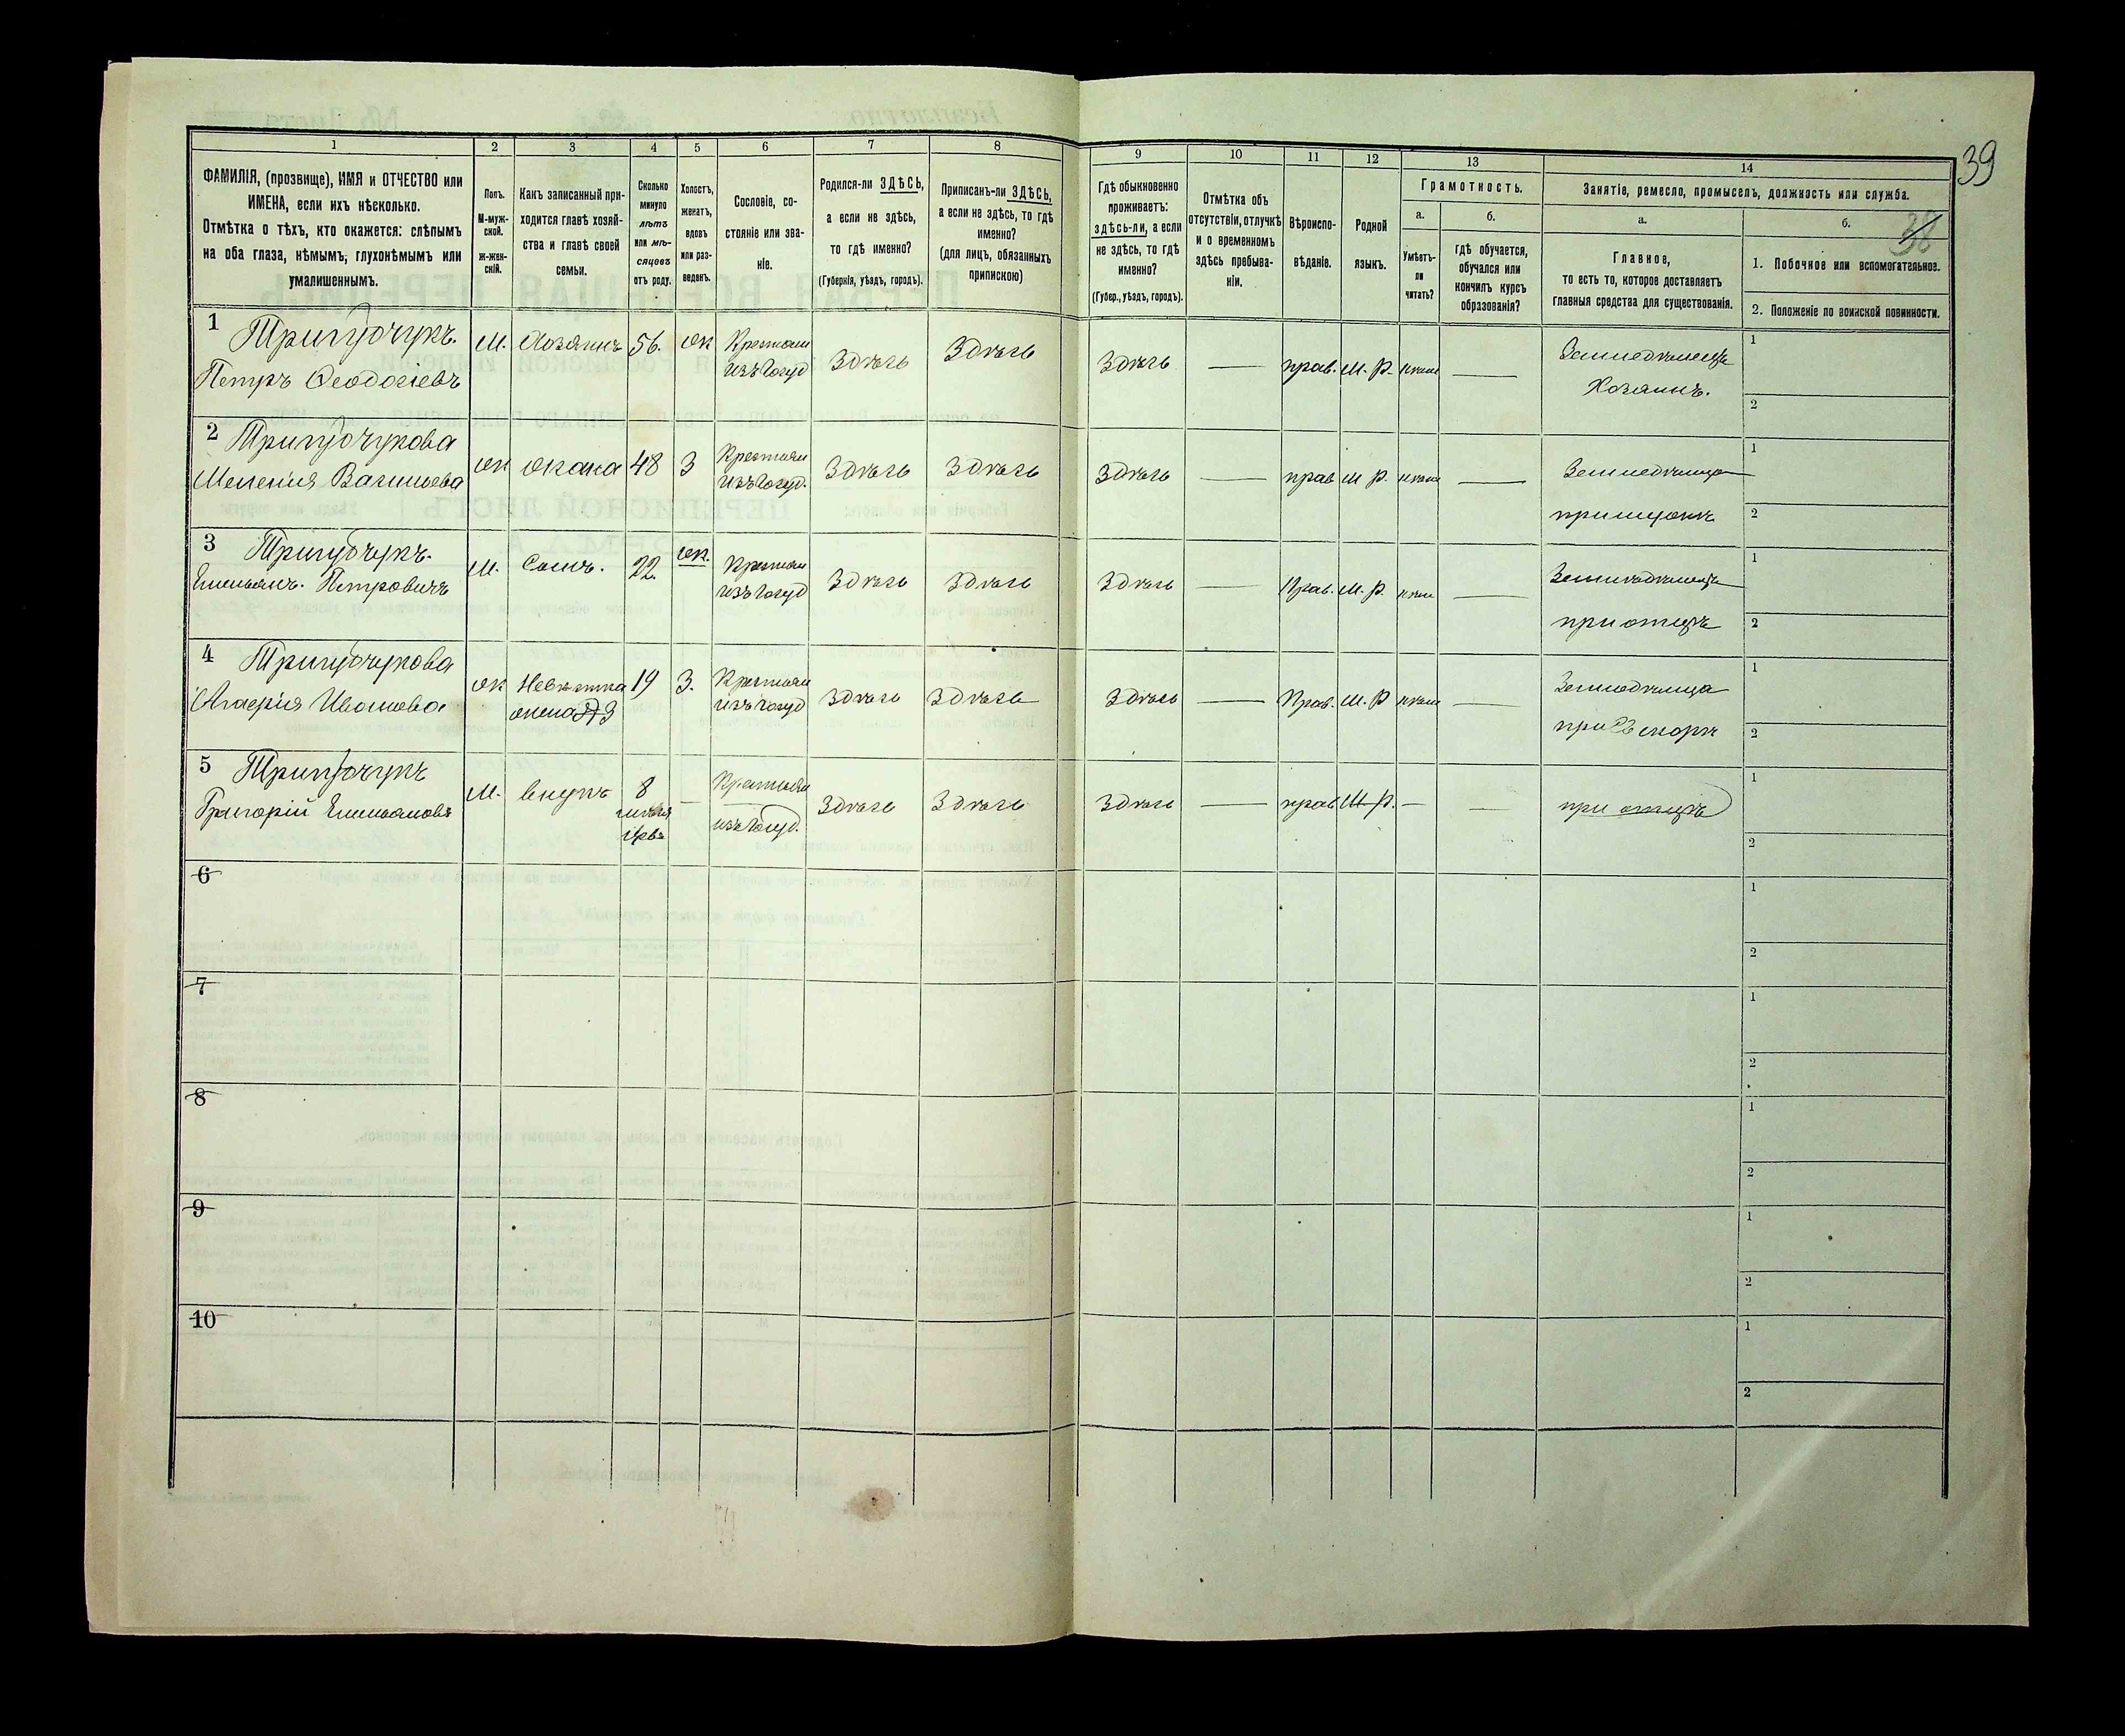 39
38
1
2
3
4
5
6
7
8
9
10
11
12
13
14
ФАМИЛІЯ, (прозвище), ИМЯ и ОТЧЕСТВО или
ИМЕНА, если ихъ нѣсколько.
Отмѣтка о тѣхъ, кто окажется: слѣпымъ
на оба глаза, нѣмымъ, глухонѣмымъ или
умалишеннымъ.
Полъ.
М-муж-
ской.
ж-жен-
скій.
Какъ записанный при-
ходится главѣ хозяй-
ства и главѣ своей
семьи.
Сколько
минуло
лѣтъ
или мѣ-
сяцевъ
отъ роду.
Холостъ,
женатъ,
вдовъ
или раз-
веденъ.
Сословіе, со-
стояніе или зва-
ніе.
Родился-ли ЗДѢСЬ,
а если не здѣсь,
то гдѣ именно?
(Губернія, уѣздъ, городъ).
Приписанъ-ли ЗДѢСЬ,
а если не здѣсь, то гдѣ
именно?
(для лицъ, обязанныхъ
припискою)
Гдѣ обыкновенно
проживаетъ:
здѣсь-ли, а если
не здѣсь, то гдѣ
именно?
(Губер., уѣздъ, городъ).
Отмѣтка объ
отсутствіи, отлучкѣ
и о временномъ
здѣсь пребыва-
ніи.
Вѣроиспо-
вѣданіе.
Родной
языкъ.
Грамотность.
а.
Умѣетъ-
ли
читать?
б.
Гдѣ обучается,
обучался или
кончилъ курсъ
образованія?
Занятіе, ремесло, промыселъ, должность или служба.
а.
Главное,
то есть то, которое доставляетъ
главныя средства для существованія.
б.
1. Побочное или вспомогательное.
2. Положеніе по воинской повинности.
1 Тригубчукъ.
Петръ Ѳеодосіевъ
М. Хозяинъ 56. ж Крестьян
изъ госуд Здѣсь Здѣсь Здѣсь — прав. М. Р. —
Земледѣлецъ
Хозяинъ.
1
2
2 Тригубчукова
Мелания Василиева
ж жена 48 З Крестьян
изъ госуд. Здѣсь Здѣсь Здѣсь — прав М Р. —
Земледѣлица
при мужѣ
1
2
3 Тригубчукъ.
Емельянъ. Петровичъ
М. Сынъ. 22 ж. Крестьян
изъ госуд Здѣсь Здѣсь Здѣсь — Прав. М. Р. —
Земледѣлецъ
при отцѣ
1
2
4 Тригубчукова
Агафія Иванова
ж Невѣстка
жена 3 19 З. Крестьян
изъ госуд Здѣсь Здѣсь Здѣсь — Прав. М. Р —
Земледѣлица
при
1
2
5 Тригубчукъ
Григорій Емельяновъ
М. внукъ 8 — Крестьян
изъ госуд. Здѣсь Здѣсь Здѣсь — прав М Р. — —
при отцѣ
1
2
6
1
2
7
1
2
8
1
2
9
1
2
10
1
2